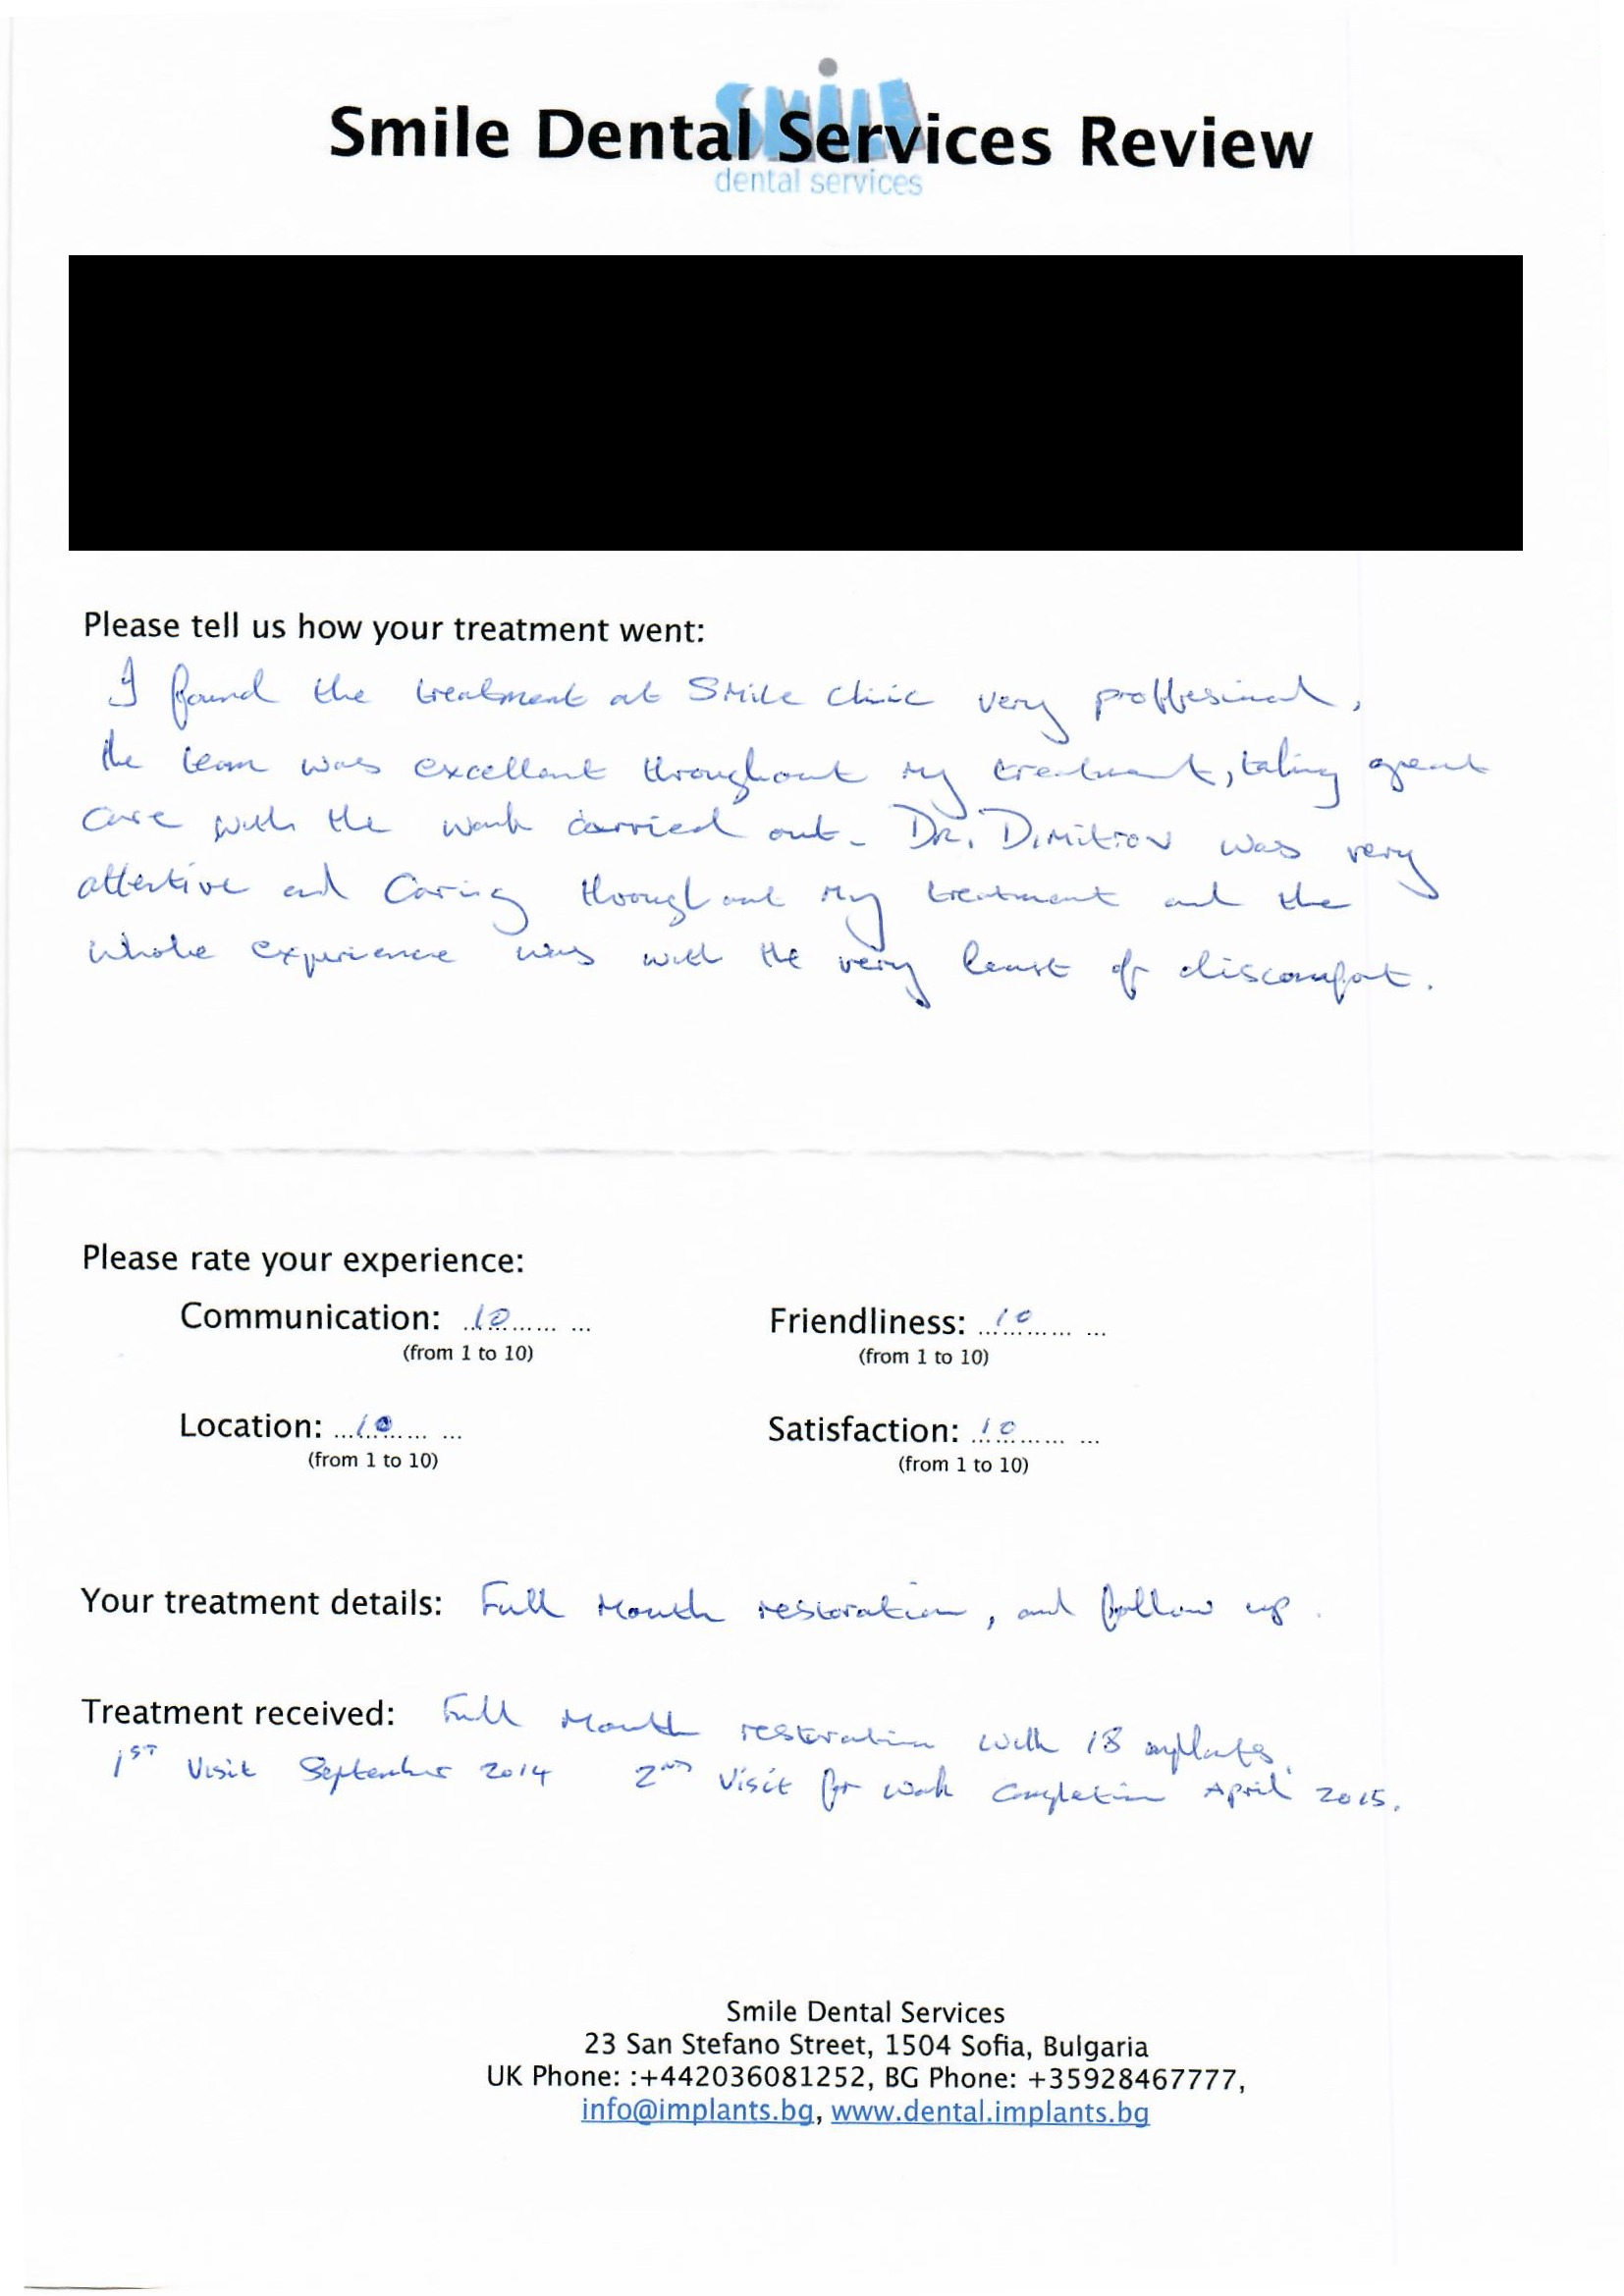 SMiLE
dental services
Smile Dental Services Review
Please tell us how your treatment went:
I found the treatment at Smile Clinic very proffesional,
the team was excellent throughout my treatment, taking great
care with the work carried out. DR. Dimitrov was very
attentive and caring throughout my treatment and the
whole experience was with the very least of discomfort.
Please rate your experience:
Communication: 10 Friendliness: 10
(from 1 to 10) (from 1 to 10)
Location: 10 Satisfaction: 10
(from 1 to 10) (from 1 to 10)
Your treatment details: Full Mouth restoration, and follow up.
Treatment received: Full Mouth restoration with 18 implants.
1ST Visit September 2014 2ND Visit for work completion April 2015.
Smile Dental Services
23 San Stefano Street, 1504 Sofia, Bulgaria
UK Phone: :+442036081252, BG Phone: +35928467777,
info@implants.bg, www.dental.implants.bg